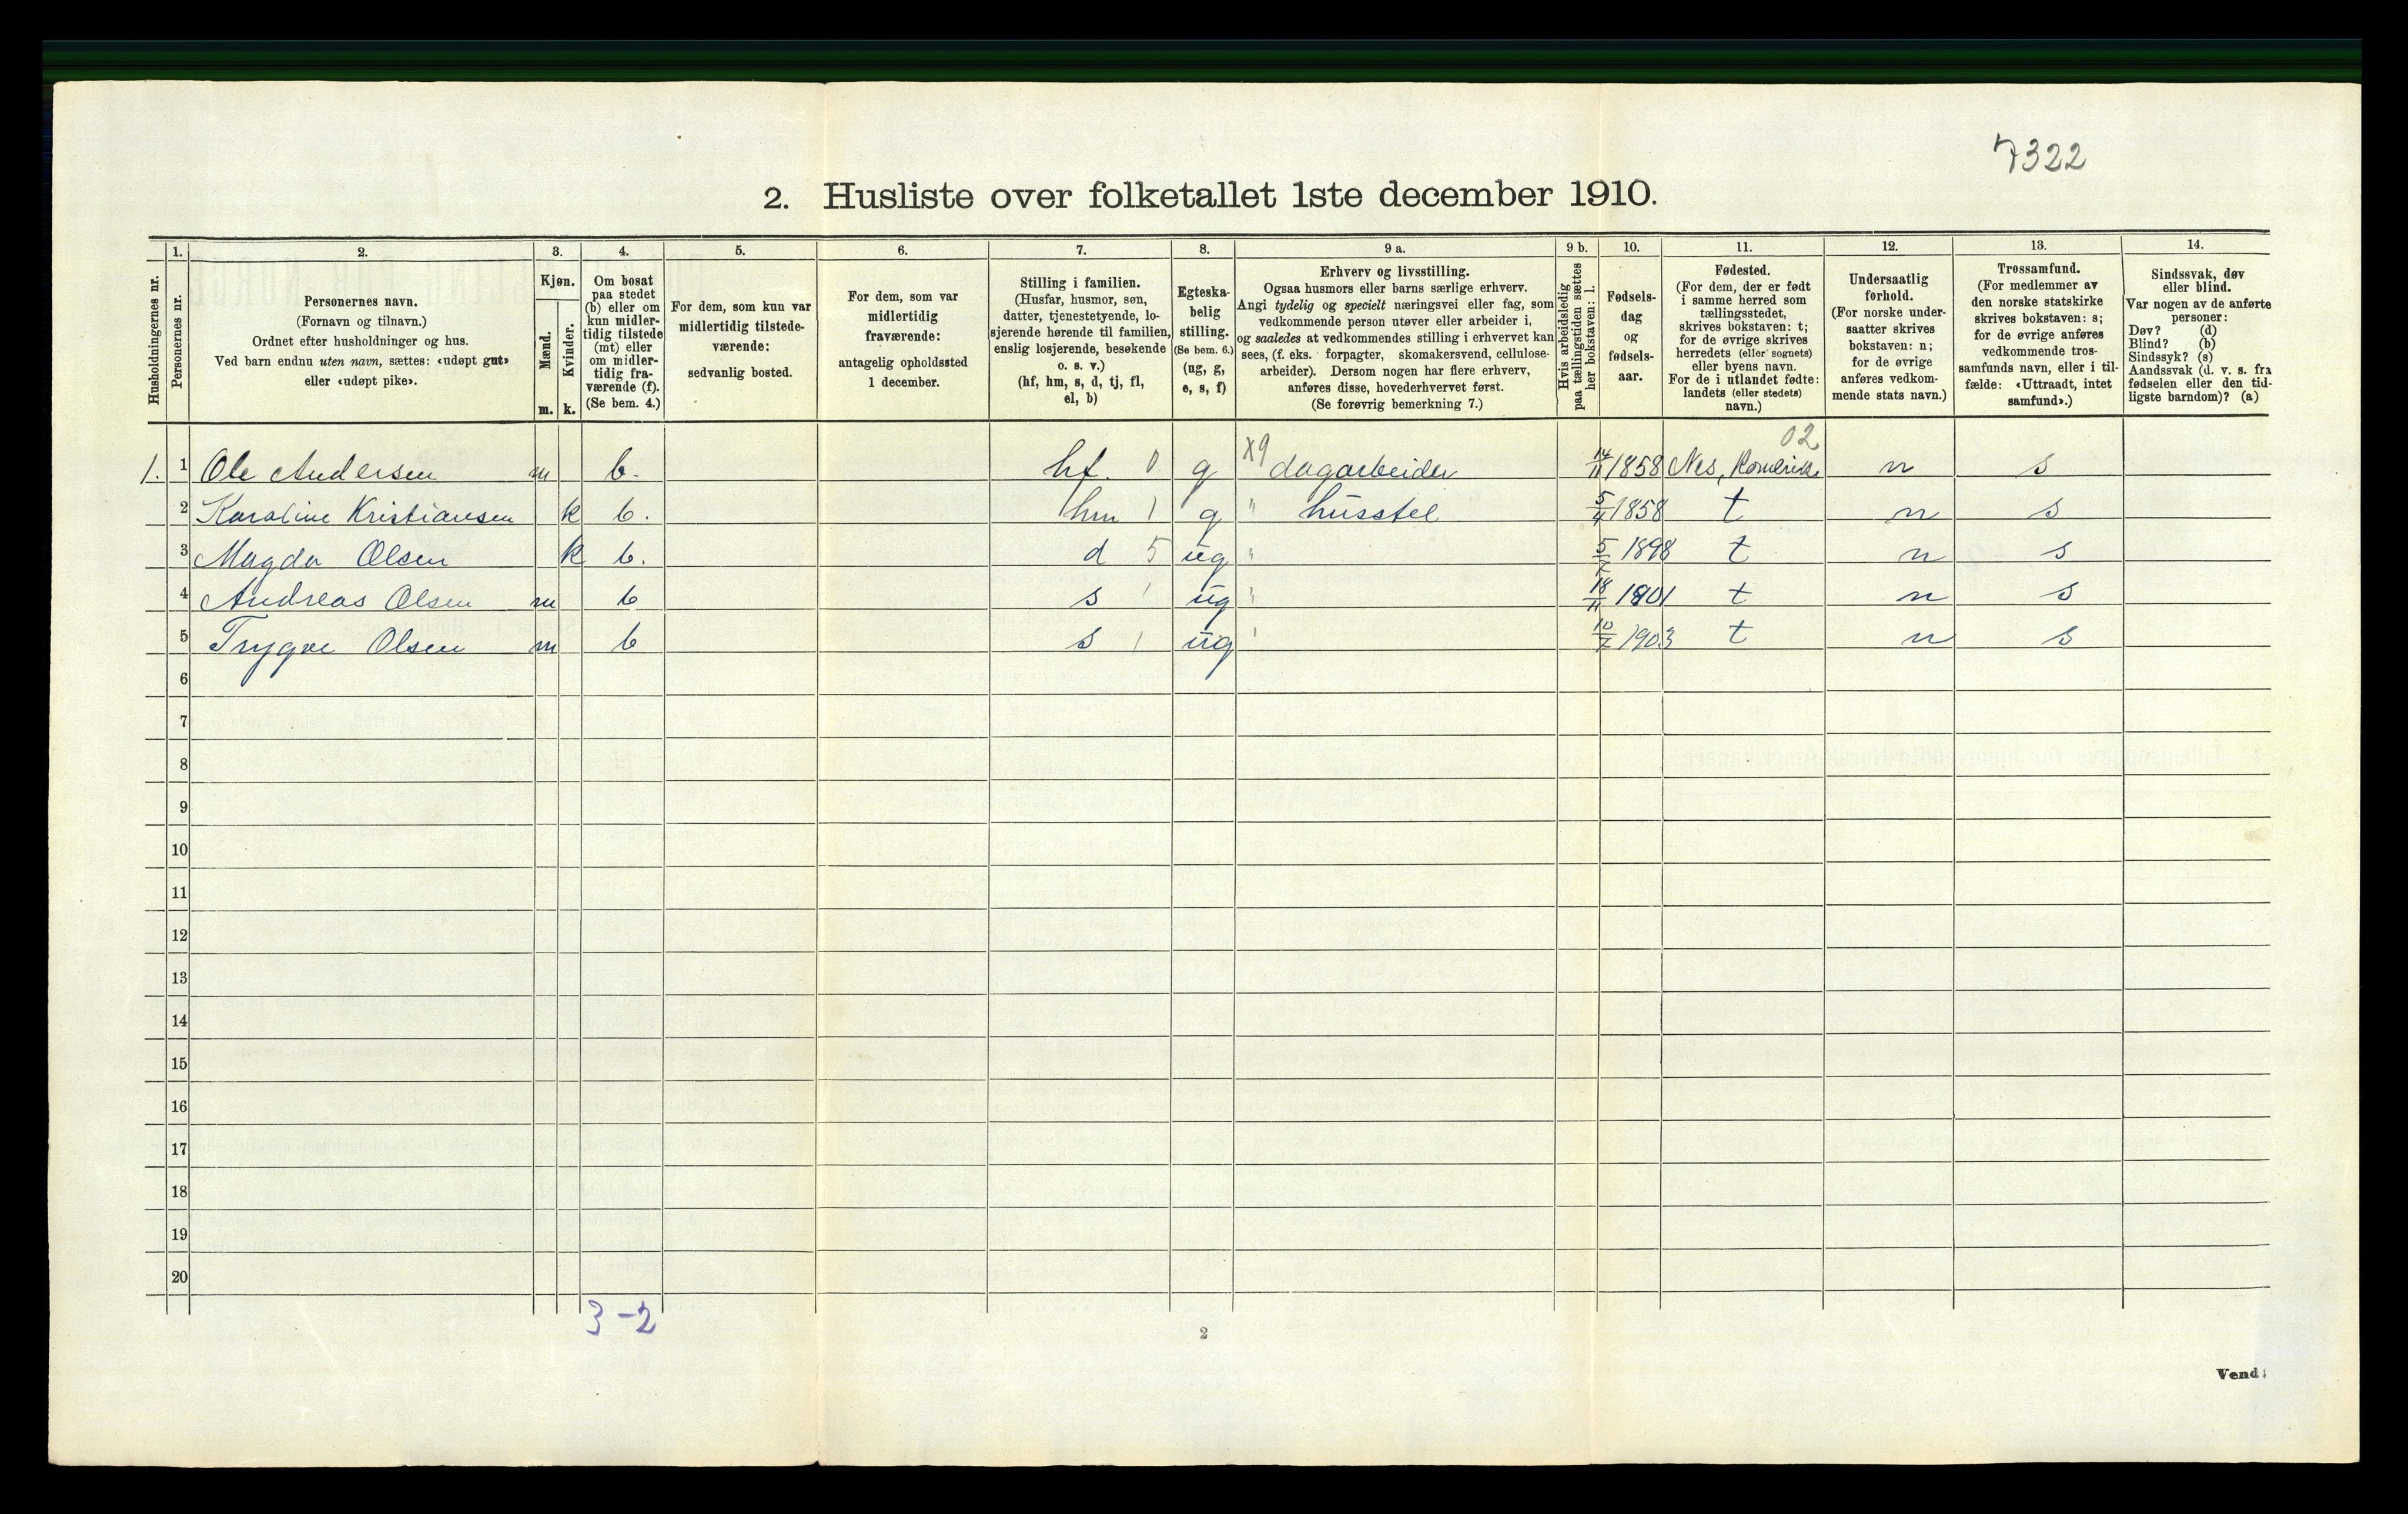 7322
2. Husliste over folketallet 1ste december 1910.
Husholdningernes nr.
1. Personernes nr.
2. Personernes navn.
(Fornavn og tilnavn.)
Ordnet efter husholdninger og hus.
Ved barn endnu uten navn, sættes: «udøpt gut»
eller «udøpt pike».
3. Kjøn.
Mænd. m.
Kvinder. k.
4. Om bosat
paa stedet
(b) eller om
kun midler-
tidig tilstede
(mt) eller
om midler-
tidig fra-
værende (f).
(Se bem. 4.)
5. For dem, som kun var
midlertidig tilstede-
værende:
sedvanlig bosted.
6. For dem, som var
midlertidig
fraværende:
antagelig opholdssted
1 december.
7. Stilling i familien.
(Husfar, husmor, søn,
datter, tjenestetyende, lo-
sjerende hørende til familien,
enslig losjerende, besøkende
o. s. v.)
(hf, hm, s, d, tj, fl,
el, b)
8. Egteska-
belig
stilling.
(Se bem. 6.)
(ug, g,
e, s, f)
9 a. Erhverv og livsstilling.
Ogsaa husmors eller barns særlige erhverv.
Angi tydelig og specielt næringsvei eller fag, som
vedkommende person utøver eller arbeider i,
og saaledes at vedkommendes stilling i erhvervet kan
sees, (f. eks. forpagter, skomakersvend, cellulose-
arbeider). Dersom nogen har flere erhverv,
anføres disse, hovederhvervet først.
(Se forøvrig bemerkning 7.)
9 b. Hvis arbeidsledig
paa tællingstiden sættes
her bokstaven: l.
10. Fødsels-
dag
og
fødsels-
aar.
11. Fødested.
(For dem, der er født
i samme herred som
tællingsstedet,
skrives bokstaven: t;
for de øvrige skrives
herredets (eller sognets)
eller byens navn.
For de i utlandet fødte:
landets (eller stedets)
navn.)
12. Undersaatlig
forhold.
(For norske under-
saatter skrives
bokstaven: n;
for de øvrige
anføres vedkom-
mende stats navn.)
13. Trossamfund.
(For medlemmer av
den norske statskirke
skrives bokstaven: s;
for de øvrige anføres
vedkommende tros-
samfunds navn, eller i til-
fælde: «Uttraadt, intet
samfund».)
14. Sindssvak, døv
eller blind.
Var nogen av de anførte
personer:
Døv? (d)
Blind? (b)
Sindssyk? (s)
Aandssvak (d. v. s. fra
fødselen eller den tid-
ligste barndom)? (a)
02
1. 1 Ole Andersen m b. hf. 0 g X9 dagarbeider 14/11 1858 Nes, Romerike n s
2 Karoline Kristiansen k b. hm 1 g " husstel 5/4 1858 t n s
3 Magda Olsen k b. d 5 ug " 1898 t n s
4 Andreas Olsen m b s 1 ug " 18/11 1901 t n s
5 Trygve Olsen m b s 1 ug " 1903 t n s
6
7
8
9
10
11
12
13
14
15
16
17
18
19
20
3-2
2
Vend!